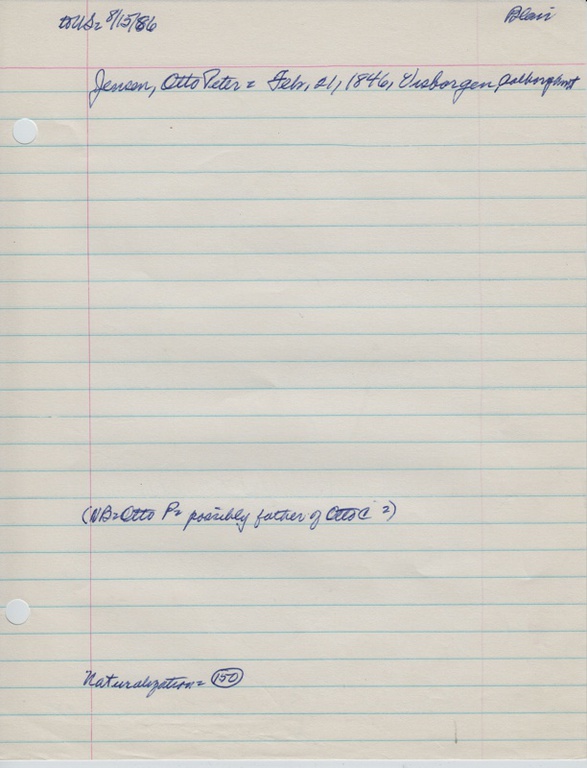 to US = 8/15/86
Blair
Jensen, Otto Peter = Feb. 21, 1846, Visborgen Aalborg Amt
(NB = Otto P = possibly father of Otto C =)
Naturalization = 150